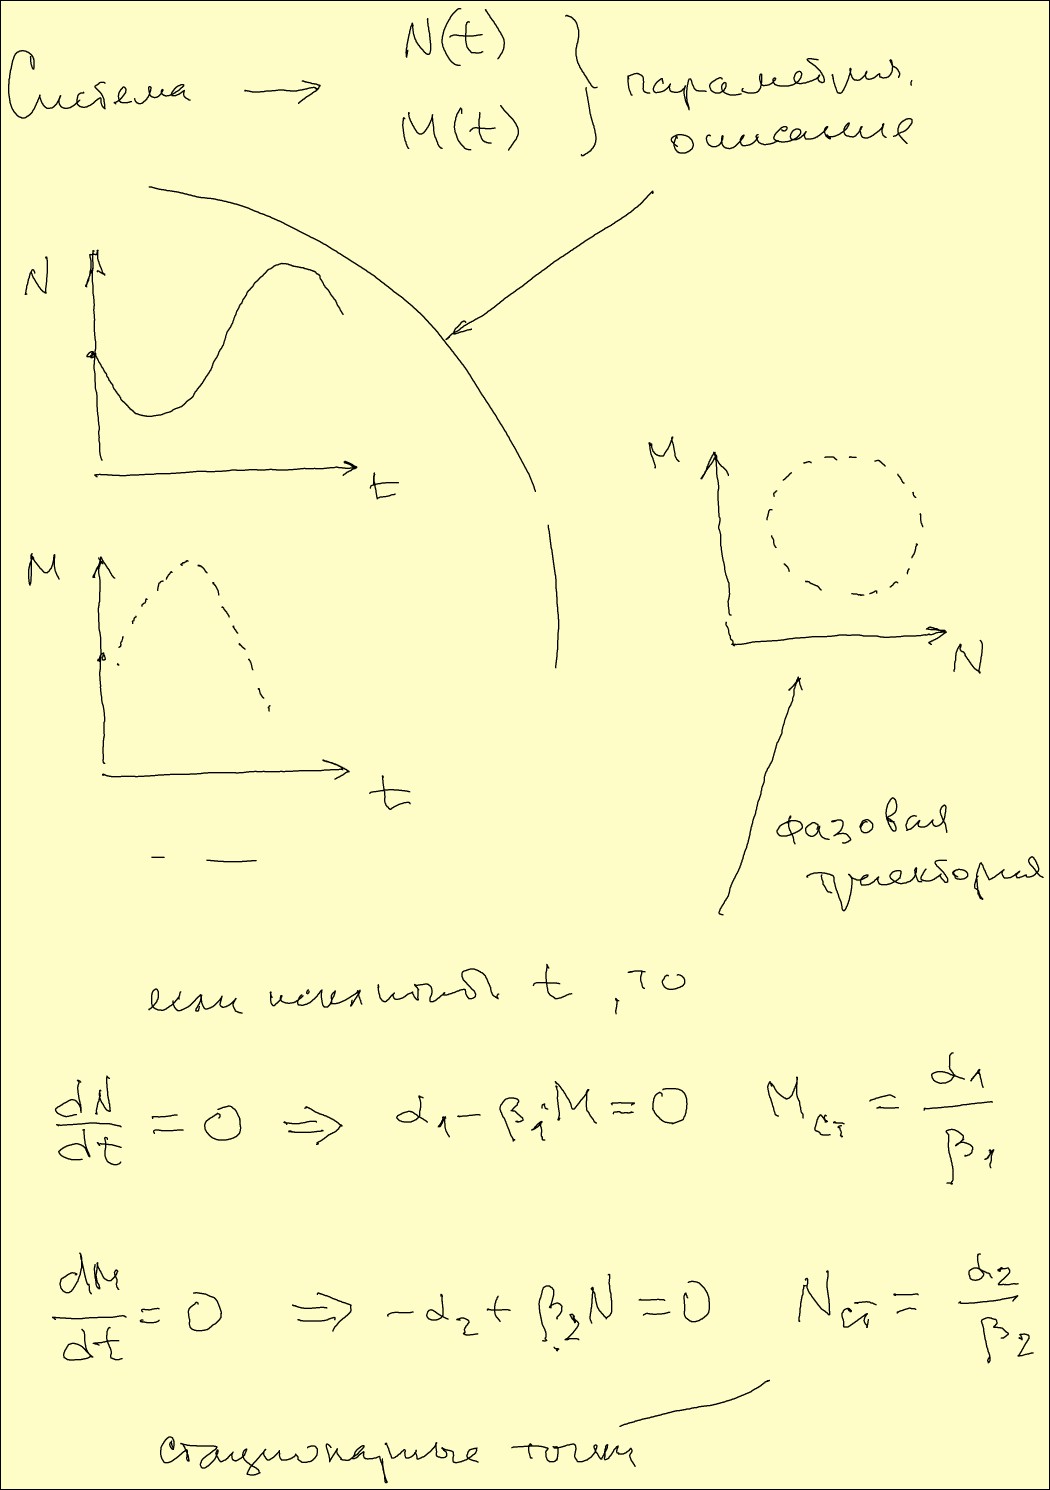 Система → N(t)
M(t)
параметрич.
описание
N
t
M
t
M
N
фазовая
траектория
если исключить t, то
dN/dt = 0 ⇒ α₁ - β₁M = 0 M_ст = α₁/β₁
dM/dt = 0 ⇒ -α₂ + β₂N = 0 N_ст = α₂/β₂
стационарные точки